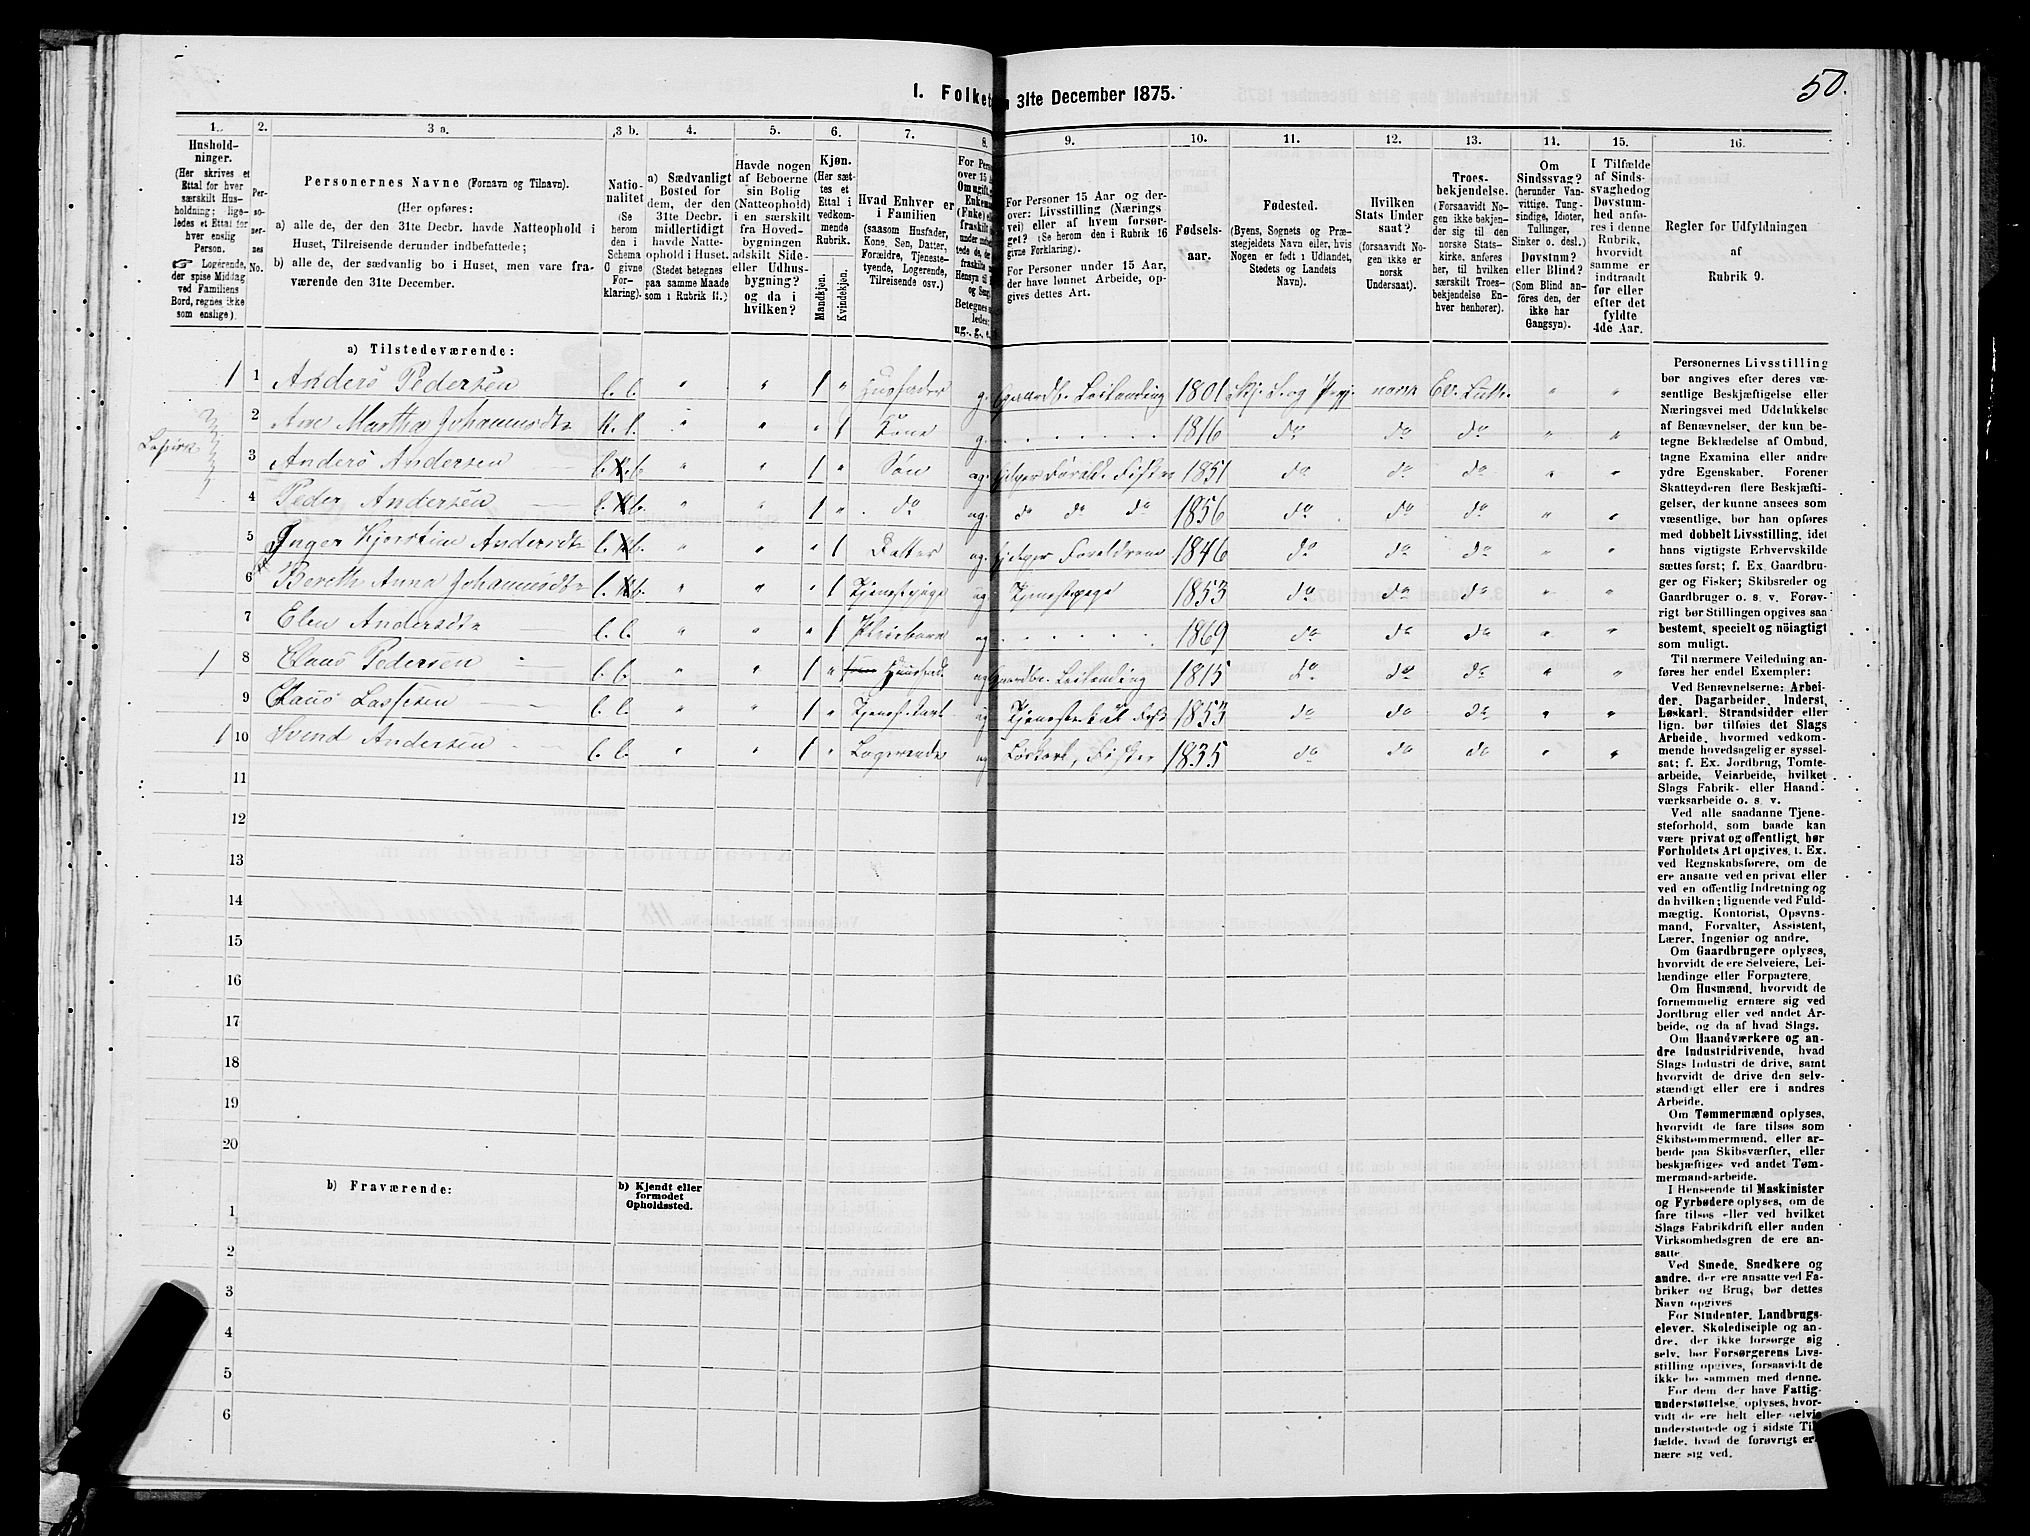 50.
I. Folket
31te December 1875.
1. 2. 3 a. 3 b. 4. 5. 6. 7. 8. 9. 10. 11. 12. 13. 14. 15. 16.
Hushold-
ninger.
(Her skrives et
Ettal for hver
særskilt Hus-
holdning; lige-
ledes et Ettal for
hver enslig
Person.
☞ Logerende,
der spise Middag
ved Familiens
Bord, regnes ikke
som enslige).
Per-
so-
ner-
nes
No.
Personernes Navne (Fornavn og Tilnavn).
(Her opføres:
a) alle de, der den 31te Decbr. havde Natteophold i
Huset, Tilreisende derunder indbefattede;
b) alle de, der sædvanlig bo i Huset, men vare fra-
værende den 31te December.
Natio-
nalitet
(Se
herom
den i
Schema
C givne
For-
klaring).
a) Sædvanligt
Bosted for
dem, der den
31te Decbr.
midlertidigt
havde Natte-
ophold i Huset.
(Stedet betegnes
paa samme Maade
som i Rubrik 11.)
Havde nogen
af Beboerne
sin Bolig
(Natteophold)
i en særskilt
fra Hoved-
bygningen
adskilt Side-
eller Udhus-
bygning?
og da i
hvilken?
Kjøn.
(Her sæt-
tes et
Ettal i
vedkom-
mende
Rubrik.
Mandkjøn.
Kvindekjøn.
Hvad Enhver er
i Familien
(saasom Husfader,
Kone, Søn, Datter,
Forældre, Tjeneste-
tyende, Logerende,
Tilreisende osv.)
For Perso
over 15 A
Om ugift, g
Enkema
(Enke) ell
fraskilt
under
Betegnes
ledes:
ug., g., e.
For Personer 15 Aar og der-
over: Livsstilling (Nærings
vei) eller af hvem forsør-
get? (Se herom den i Rubrik 16
givne Forklaring).
For Personer under 15 Aar,
der have lønnet Arbeide, op-
gives dettes Art.
Fødsels-
aar.
Fødested.
(Byens, Sognets og Præ-
stegjeldets Navn eller, hvis
Nogen er født i Udlandet,
Stedets og Landets
Navn).
Hvilken
Stats Under
saat?
(forsaavidt No-
gen ikke er
norsk
Undersaat).
Troes-
bekjendelse.
(Forsaavidt No-
gen ikke bekjen-
der sig til den
norske Stats-
kirke, anføres
her, til hvilken
særskilt Troes-
bekjendelse En-
hver henhører).
Om
Sindssvag?
(herunder Van-
vittige, Tung-
sindige, Idioter,
Tullinger,
Sinker o. desl.)
Døvstum?
eller Blind?
(Som Blind an-
føres den, der
ikke har
Gangsyn).
I Tilfælde
af Sinds-
svaghed og
Døvstum-
hed anfø-
res i denne
Rubrik,
hvorvidt
samme er
indtraadt
før eller
efter det
fyldte
4de Aar.
Regler for Udfyldningen
af
Rubrik 9.
a) Tilstedeværende:
1 1 Anders Pedersen b. b. " " 1 " Husfader g. Gaardb. Leilending 1801 norsk Ev. Luth. " "
2 Ane Martha Johannesdt K. b. " " " 1 Kone g. 1816 do do do " "
3 Anders Andersen " " 1 " Søn ug. 1851 do do do " "
4 Peder Andersen " " 1 " do ug. do do do 1856 do do do " "
5 Inger Kjerstine Andersdt " " " 1 Datter ug. hjelper Foreldrene 1846 do do do " "
6 Bereth Anna Johannesdt " " " 1 Tjenestpige ug Tjenestpige 1853 do do do " "
7 Elen Andersdt b. b. " " " 1 Pleiebarn ug 1869 do do do " "
1 8 Claus Pedersen b. b. " " 1 " ug Gaardbr. Leilending 1815 do do do " "
9 Claus Lassesen b. b. " " 1 " ug 1853 do do do " "
1 10 Svend Andersen b. b. " " 1 " Logerende ug Løskarl, Fisker 1835 do do do " "
11
12
13
14
15
16
17
18
19
20
b) Fraværende:
b) Kjendt eller
formodet
Opholdssted.
1
2
3
4
5
6
Personernes Livsstilling
bør angives efter deres væ-
sentlige Beskjæftigelse eller
Næringsvei med Udelukkelse
af Benævnelser, der kun be-
tegne Beklædelse af Ombud,
tagne Examina eller andre
ydre Egenskaber. Forener
Skatteyderen flere Beskjæfti-
gelser, der kunne ansees som
væsentlige, bør han opføres
med dobbelt Livsstilling, idet
hans vigtigste Erhvervskilde
sættes først; f. Ex. Gaardbru-
ger og Fisker; Skibsreder og
Gaardbruger o. s. v. Forøv-
rigt bør Stillingen opgives saa
bestemt, specielt og nöiagtigt
som muligt.
Til nærmere Veiledning an-
føres her endel Exempler:
Ved Benævnelserne: Arbei-
der, Dagarbeider, Inderst,
Løskarl, Strandsidder eller
lign. bør tilføies det Slags
Arbeide, hvormed vedkom-
mende hovedsagelig er syssel-
sat; f. Ex. Jordbrug, Tomte-
arbeide, Veiarbeide, hvilket
Slags Fabrik- eller Haand-
værksarbeide o. s. v.
Ved alle saadanne Tjene-
steforhold, som baade kan
være privat og offentligt, bør
Forholdets Art opgives, f. Ex.
ved Regnskabsførere, om de
ere ansatte ved en privat eller
ved en offentlig Indretning og
da hvilken; lignende ved Fuld-
mægtig, Kontorist, Opsyns-
mand, Forvalter, Assistent,
Lærer, Ingeniør og andre.
Om Gaardbrugere oplyses,
hvorvidt de ere Selveiere, Lei-
lændinge eller Forpagtere.
Om Husmænd, hvorvidt de
fornemmelig ernære sig ved
Jordbrug eller ved andet Ar-
beide, og da af hvad Slags.
Om Haandværkere og an-
dre Industridrivende, hvad
Slags Industri de drive, samt
hvorvidt de drive den selv-
stændigt eller ere i andres
Arbeide.
Om Tømmermænd oplyses,
hvorvidt de fare tilsøs som
Skibstømmermænd, eller ar-
beide paa Skibsværfter, eller
beskjæftiges ved andet Tøm-
mermand-arbeide.
I Henseende til Maskinister
og Fyrbødere oplyses, om de
fare tilsøs eller ved hvilket
Slags Fabrikdrift eller anden
Virksomhedsgren de ere an-
satte
Ved Smede, Snedkere og
andre, der ere ansatte ved Fa-
briker og Brug, bør dettes
Navn opgives
For Studenter, Landbrugs-
elever, Skoledisciple og an-
dre, der ikke forsørge sig
selv, bør Forsørgerens Livs-
stilling opgives, forsaavidt de
ikke bo sammen med denne.
For dem, der have Fattig-
understøttelse, oplyses, hvor-
vidt de ere helt eller delvis
understøttede og i sidste Til-
fælde, hvad de forøvrigt er-
nære sig ved.